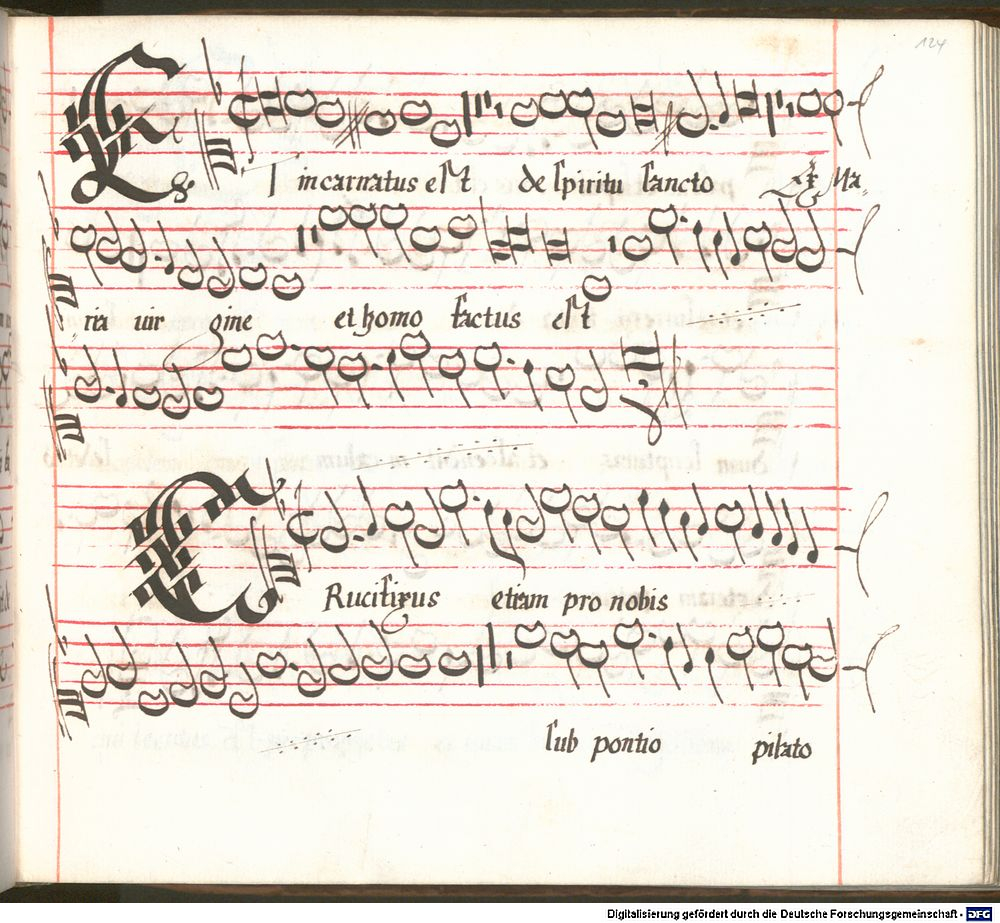 124
ET incarnatus est de spiritu sancto ex Ma
ria vir gine et homo factus est
CRucifixus etiam pro nobis
sub pontio pilato
Digitalisierung gefördert durch die Deutsche Forschungsgemeinschaft - DFG